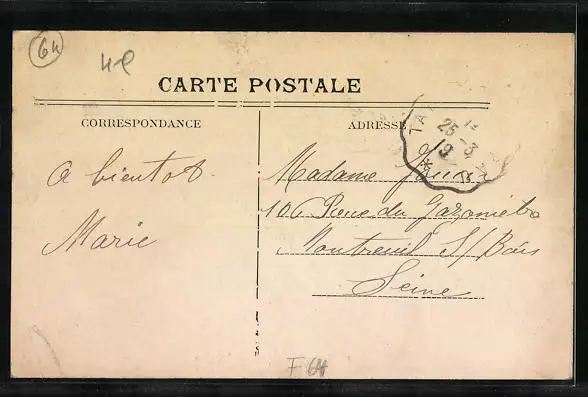 64
CARTE POSTALE
CORRESPONDANCE
ADRESSE
TA
25-3
A bientot.
Marie
Madame
106 Rue du Gazomètre
Montreuil S/Bois
Seine
F 64